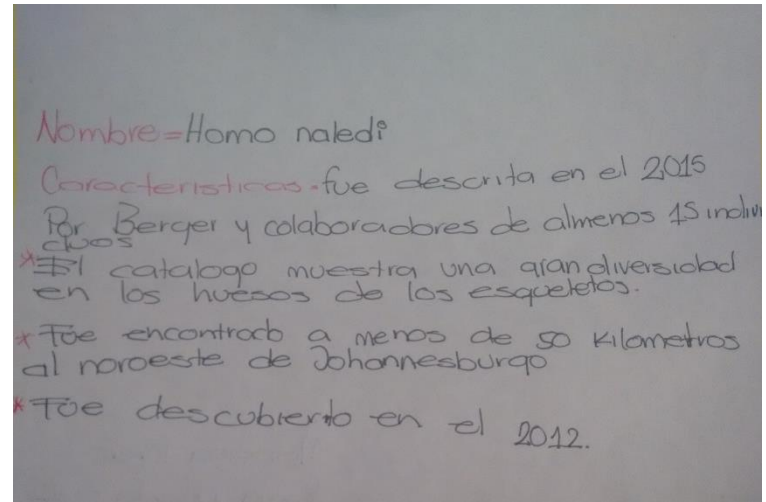 Nombre=Homo naledi
Caracteristicas.fue descrita en el 2015
Por Berger y colaboradores de almenos 15 indivi
duos
*El catalogo muestra una gran diversidad
en los huesos de los esqueletos.
*Foe encontrado a menos de 50 Kilometros
al noroeste de Johannesburgo
*Foe descubierto en el 2012.